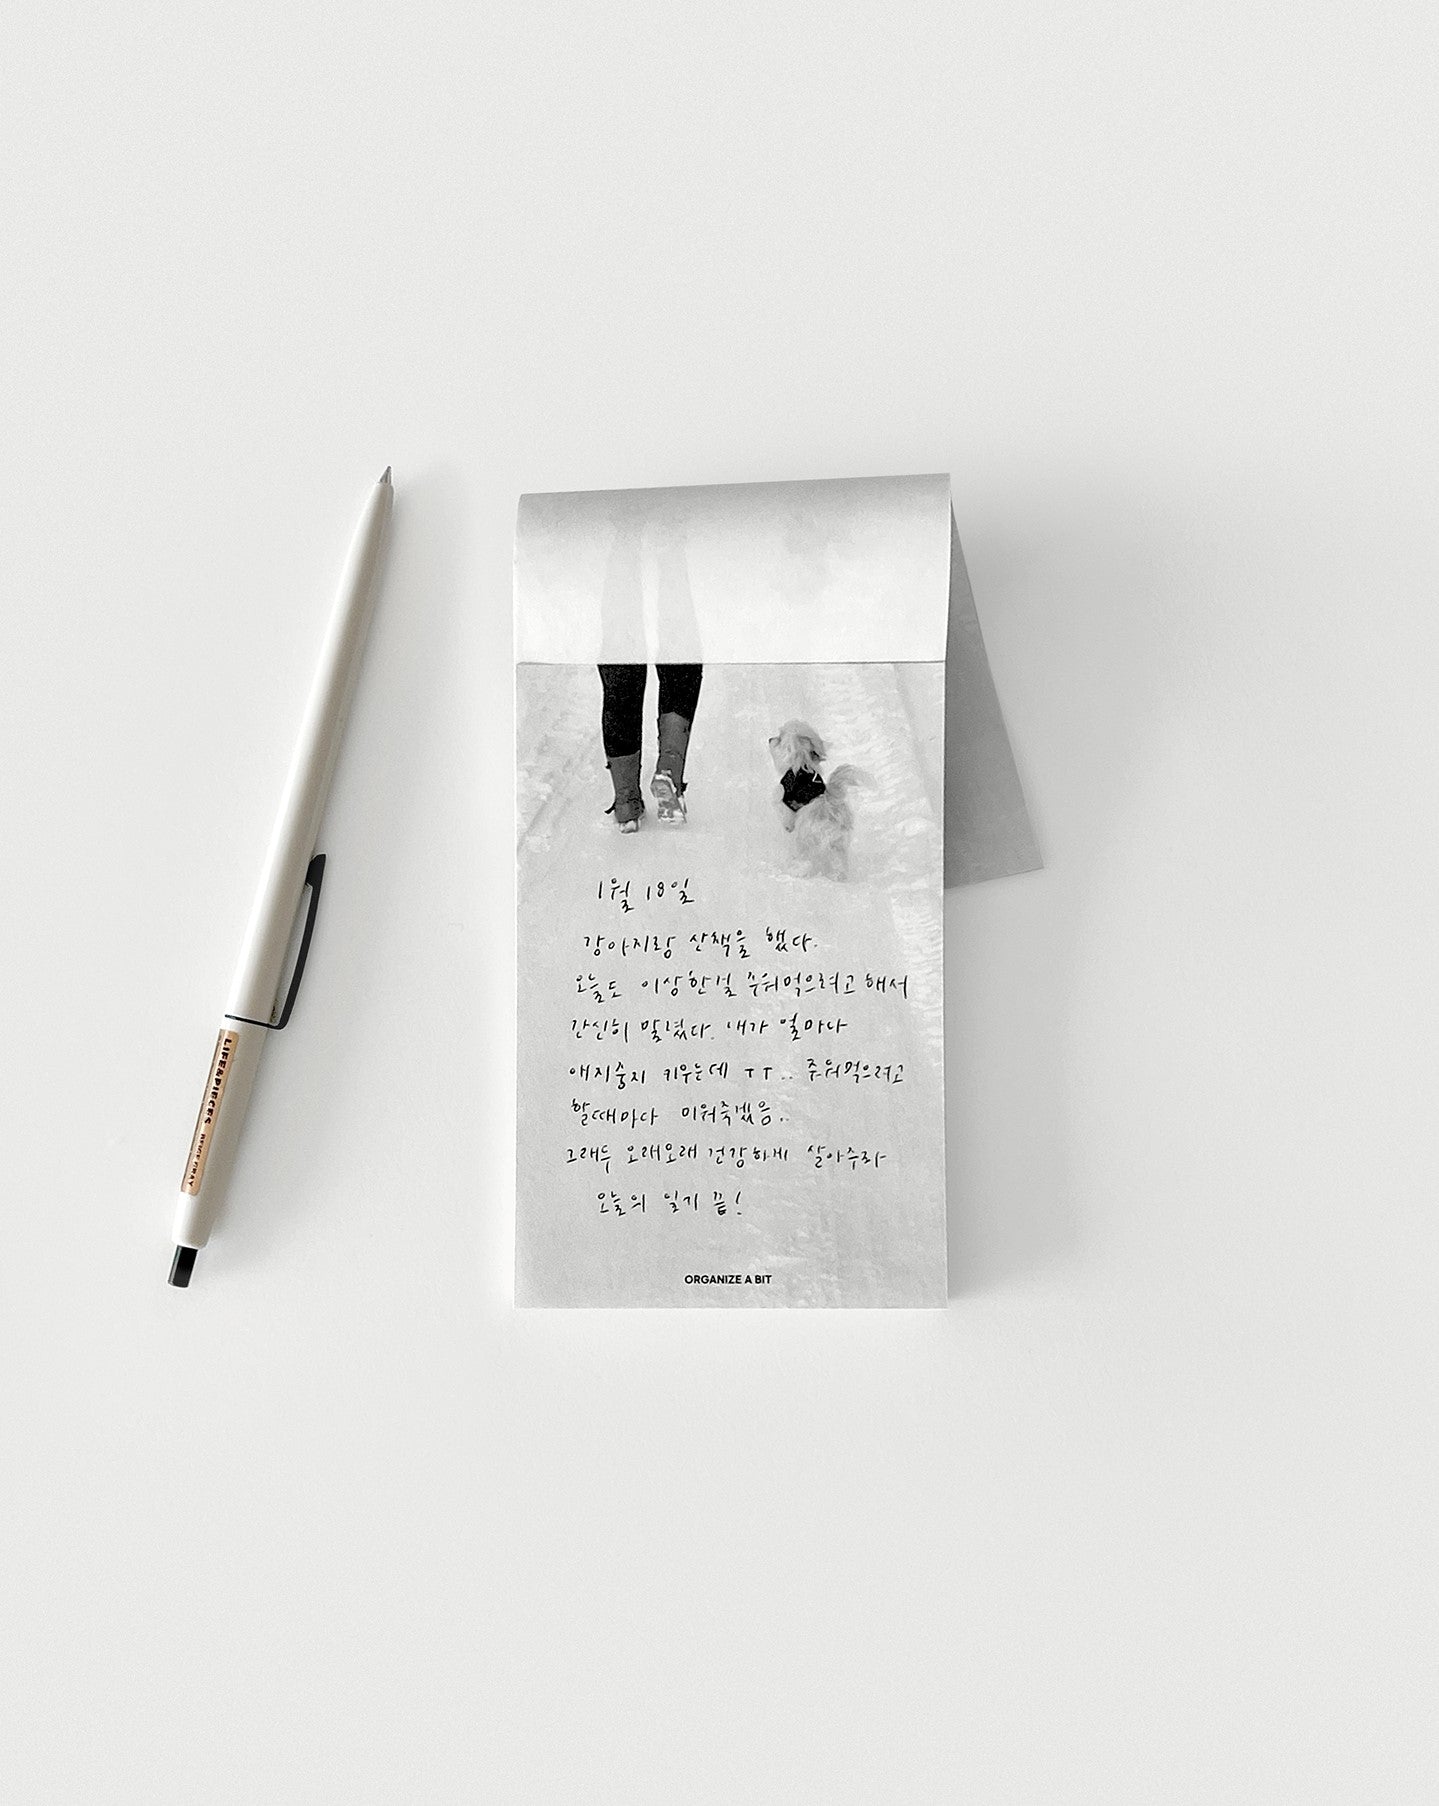 1월 18일
강아지랑 산책을 했다.
오늘도 이상한걸 주워먹으려고 해서
간신히 말렸다. 내가 얼마나
애지중지 키우는데 ㅜㅜ.. 주워먹으려고
할때마다 미워죽겠음..
그래두 오래오래 건강하게 살아주라
오늘의 일기 끝!
ORGANIZE A BIT
LIFE&PIECES